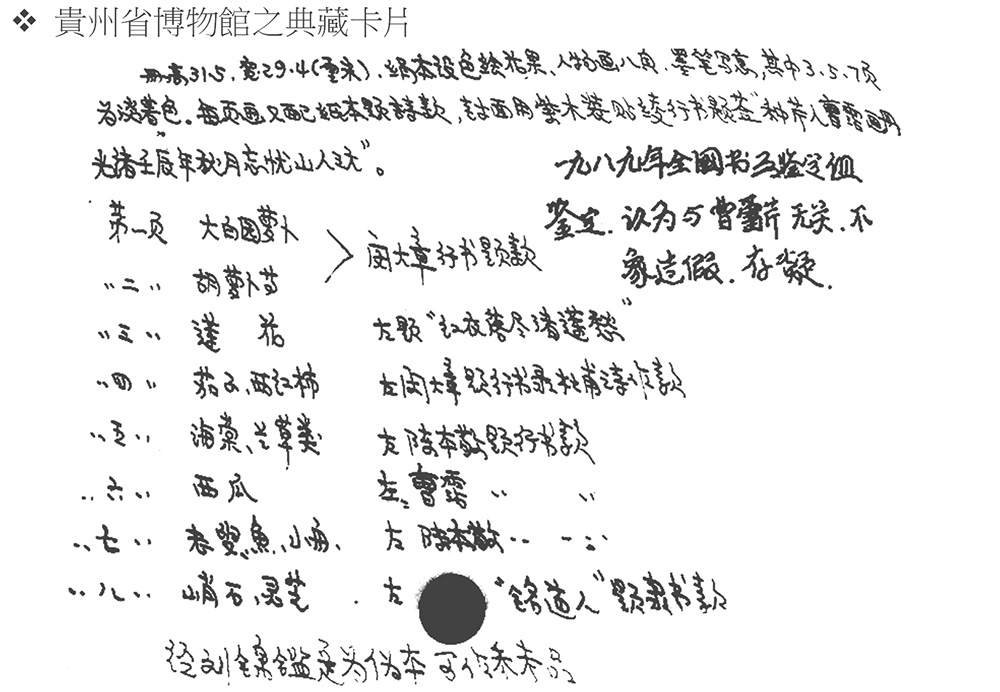 ❖ 貴州省博物館之典藏卡片
册高31.5,宽29.4(厘米),纸本设色绘花果、人物画八页,墨笔写意,其中3.5.7页
为淡著色。每页画又配纸本题诗款,封面用紫木装贴绫行书题签"种芹人曹霑画册
光绪壬辰年秋月忘忧山人玩"。
一九八九年全國书画鉴定组
鉴定,认为与曹雪芹无关,不
象造假,存疑.
第一页 大白圆萝卜
〃二〃 胡萝卜等
> 闵大章行书题款
〃三〃 莲 花 左题"红衣落尽渚莲愁"
〃四〃 茄子、西红柿 左闵大章题行书录杜甫诗作款
〃五〃 海棠、兰草类 左陈本敬题行书款
〃六〃 西瓜 左,曹霑〃 〃
〃七〃 老翁、鱼、小舟、 左 陈本敬〃 〃
〃八〃 峭石、灵芝 . 左 "铭道人"题隶书款
经刘 鉴定为伪本可作参考品